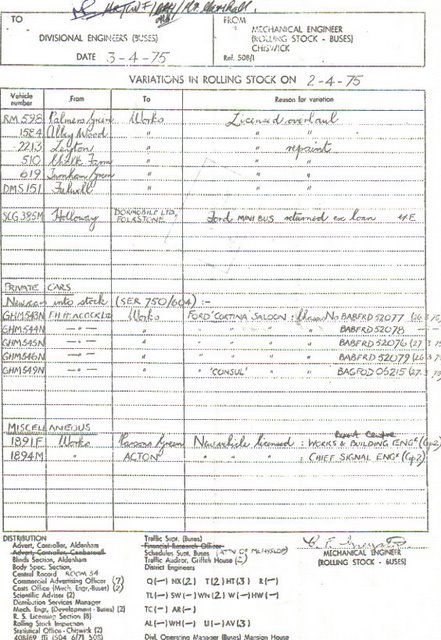 TO
FROM
DIVISIONAL ENGINEERS (BUSES)
MECHANICAL ENGINEER
(ROLLING STOCK - BUSES)
CHISWICK
DATE 3-4-75
Ref. 508/1
VARIATIONS IN ROLLING STOCK ON 2-4-75
Vehicle number From To Reason for variation
RM 598 Palmers Green Works Licensed overhaul
1584 Abbey Wood " " "
2213 Leyton " " repaint
510 Chalk Farm " " "
619 Turnham Green " " "
DMS 151 Fulwell " " "
SLG 385M Holloway DORMOBILE LTD, FOLKSTONE Ford MINI BUS returned ex loan
PRIVATE CARS
New cars into stock (SER 750/604) :-
GHM 543N Works FORD 'CORTINA SALOON : Chassis No BABFRD 52077
GHM 544N — " — " " " " " BABFRD 52078 —
GHM 545N — " — " " " " " BABFRD 52076
GHM 546N — " — " " " " " BABFRD 52079
GHM 549N — " — " " 'CONSUL' " BAGFOD 05215
MISCELLANEOUS
1891F Works Parsons Green New vehicle licensed : WORKS & BUILDING ENGR (Gp2)
1894M " ACTON " " " : CHIEF SIGNAL ENGR (Gp2)
DISTRIBUTION
MECHANICAL ENGINEER
(ROLLING STOCK - BUSES)
Advert. Controller, Aldenham
Blinds Section, Aldenham
Body Spec. Section,
Central Record ROOM 54
Commercial Advertising Officer (7)
Costs Office (Mech. Engr. Buses) (2)
Scientific Adviser (2)
Distribution Services Manager
Mech. Engr, (Development - Buses) (2)
R. S. Licensing Section (8)
Rolling Stock Inspection
Statistical Office - Chiswick (2)
Traffic Supt. (Buses)
Financial Research Officer
Schedules Supt. Buses
Traffic Auditor, Griffith House (2)
District Engineers
Q(—) NX(2) T(2) HT(3) R(—)
TL(—) SW(—) WN(2) W(—) HW(—)
TC(—) AR(—)
AL(—) WH(—) U(—) AV(3)
Dial, Operating Manager (Buses) Mansion House